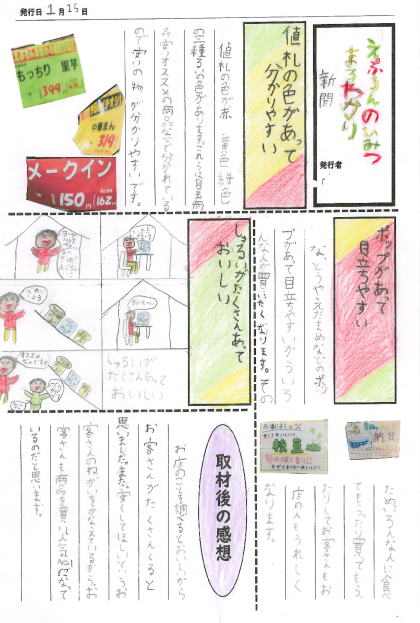 発行日 1月15日
えぷろんのひみつ
まるわかり
新聞
発行者
値札の色があって
分かりやすい
値札の色が赤 黄色 緑色
の三種るいの色があります。
品、安いオススメの商品などで分かれている
ので安いの物が分かりやすいです。
もっちり 里芋
399
中華まん
メークイン
150円
162円
ポップがあって
目立ちやすい
なっとうやえだまめなどのポッ
プがあって目立ちやすいからいろ
んな人が買いたくなります。その
ため、いろんな人に食べ
てもらったり買ってもら
ったりしてお客さんもお
店の人もうれしく
なります。
しゅるいがたくさんあって
おいしい
しゅるいが
たくさんあって
おいしい
取材後の感想
お店のことを調べるとおいしいから
お客さんがたくさんくると
思いました。また、安くしてほしいというお
客さんのねがいをかなえているから、お
客さんも商品を買い、人気No.1になって
いるのだと思います。